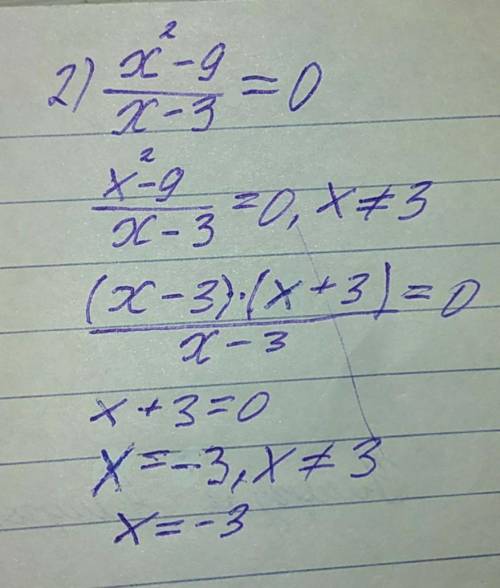 2) (x² - 9)/(x - 3) = 0
(x² - 9)/(x - 3) = 0, x ≠ 3
((x - 3)·(x + 3))/(x - 3) = 0
x + 3 = 0
x = -3, x ≠ 3
x = -3